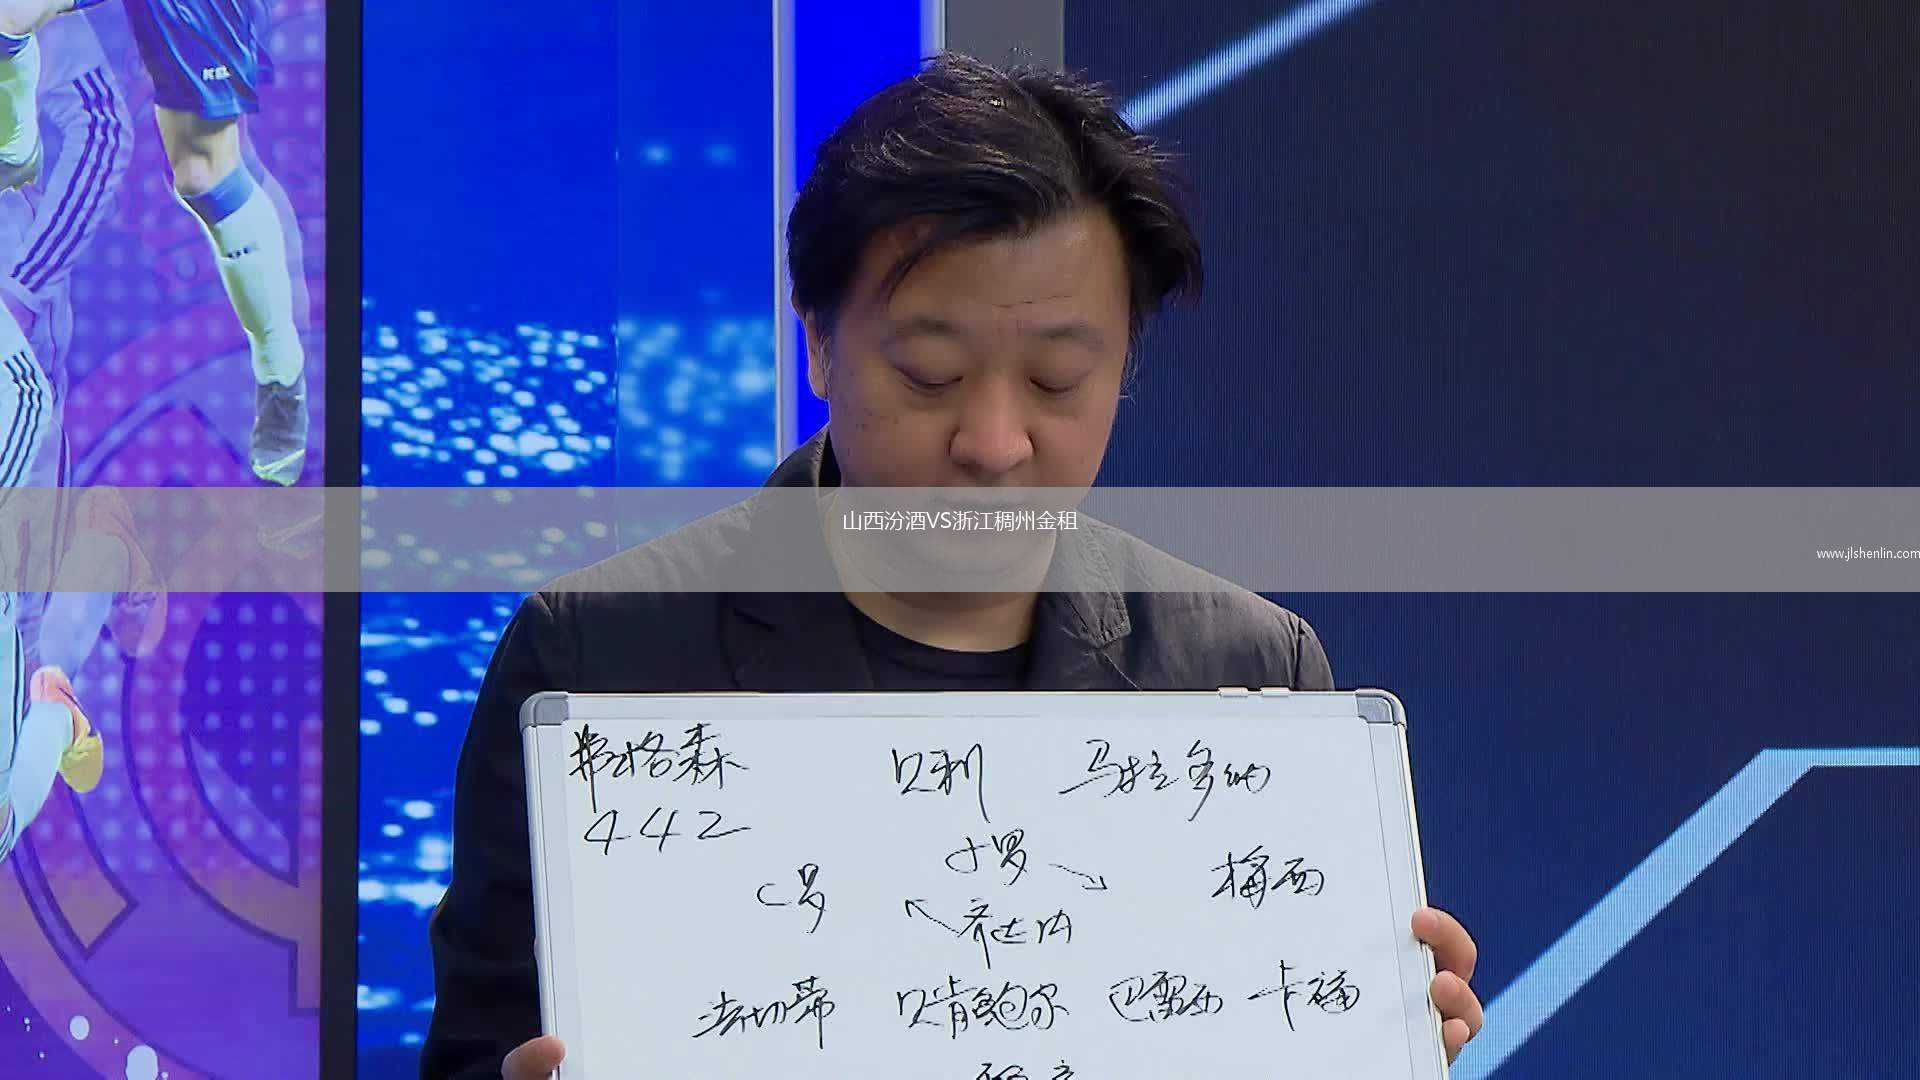 KEL
山西汾酒VS浙江稠州金租
www.jlshenlin.com
弗格森 贝利 马拉多纳
442
小罗
C罗 梅西
齐达内
法切蒂 贝肯鲍尔 巴雷西 卡福